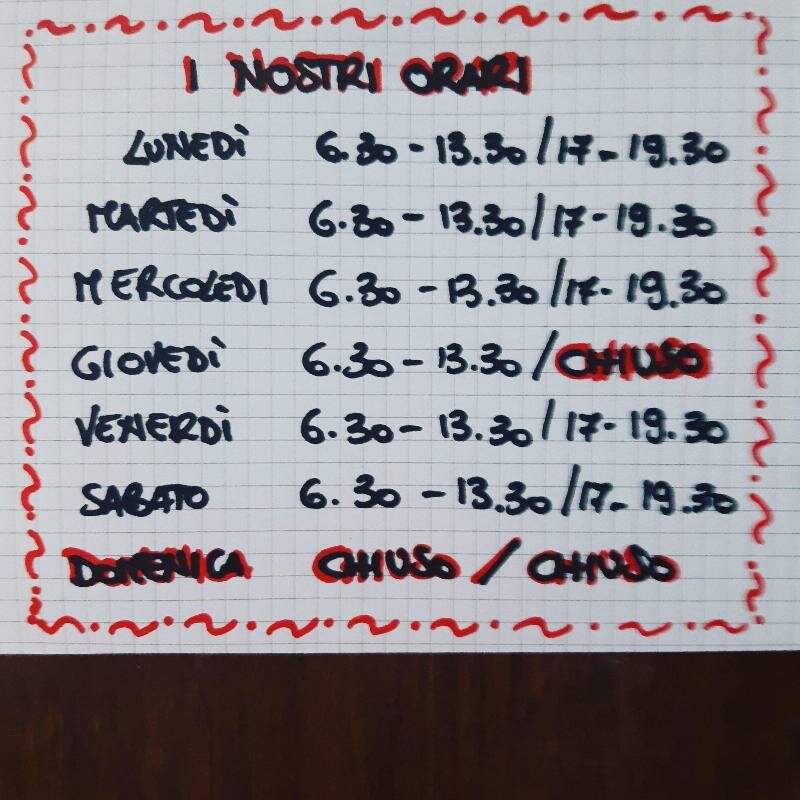 I NOSTRI ORARI
LUNEDÌ 6.30 - 13.30 / 17 - 19.30
MARTEDÌ 6.30 - 13.30 / 17 - 19.30
MERCOLEDI 6.30 - 13.30 / 17 - 19.30
GIOVEDÌ 6.30 - 13.30 / CHIUSO
VENERDÌ 6.30 - 13.30 / 17 - 19.30
SABATO 6.30 - 13.30 / 17 - 19.30
DOMENICA CHIUSO / CHIUSO